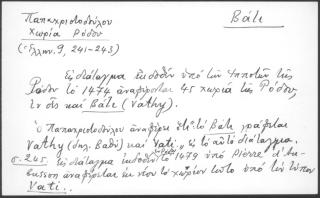 Παπαχριστοδούλου
Χωρία Ρόδου
(Ἑλλην. 9, 241-243)
Βάτι
Εἰς διάταγμα ἐκδοθὲν ὑπὸ τῶν Ἱπποτῶν τῆς
Ρόδου τὸ 1474 ἀναφέρονται 45 χωρία τῆς Ρόδου,
ἐν οἷς καὶ Βάτι (Vathy).
Ὁ Παπαχριστοδούλου ἀναφέρει ὅτι τὸ Βάτι γράφεται
Vathy (δηλ. Βαθύ) καὶ Vati, εἰς τὸ αὐτὸ διάταγμα.
σ. 245. Εἰς διάταγμα ἐκδοθὲν τὸ 1479 ὑπὸ Pierre d'Au-
busson ἀναφέρεται ἐκ νέου τὸ χωρίον τοῦτο ὑπὸ τὸν τύπον
Vati.